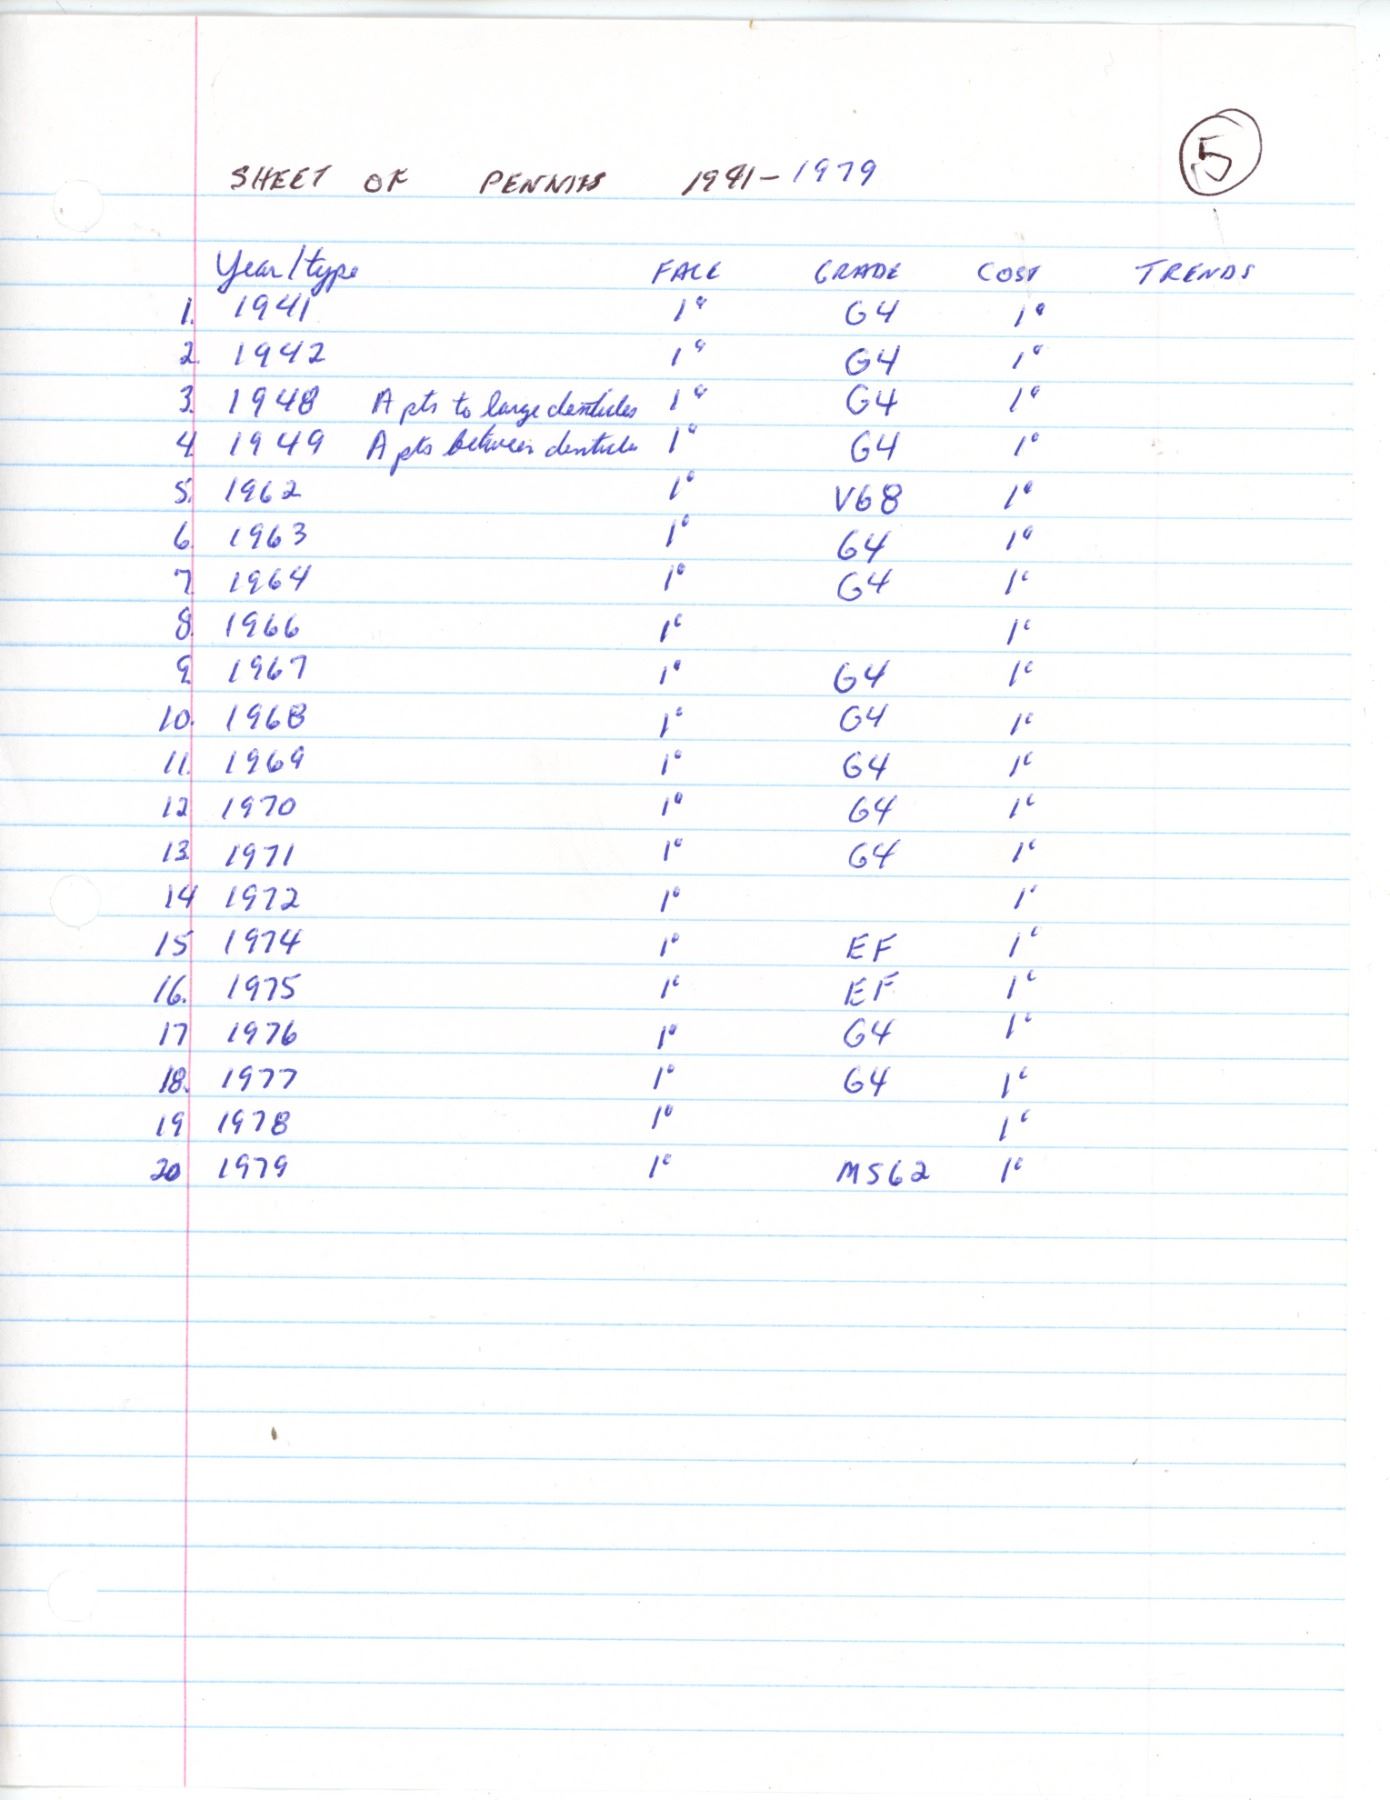 5
SHEET OF PENNIES 1941-1979
Year/type FACE GRADE COST TRENDS
1. 1941 1¢ G4 1¢
2. 1942 1¢ G4 1¢
3. 1948 A pts to large denticles 1¢ G4 1¢
4 1949 A pts between denticles 1¢ G4 1¢
5. 1962 1¢ VG8 1¢
6. 1963 1¢ G4 1¢
7 1964 1¢ G4 1¢
8. 1966 1¢ 1¢
9 1967 1¢ G4 1¢
10. 1968 1¢ G4 1¢
11. 1969 1¢ G4 1¢
12 1970 1¢ G4 1¢
13. 1971 1¢ G4 1¢
14 1972 1¢ 1¢
15 1974 1¢ EF 1¢
16. 1975 1¢ EF 1¢
17 1976 1¢ G4 1¢
18. 1977 1¢ G4 1¢
19 1978 1¢ 1¢
20 1979 1¢ MS62 1¢